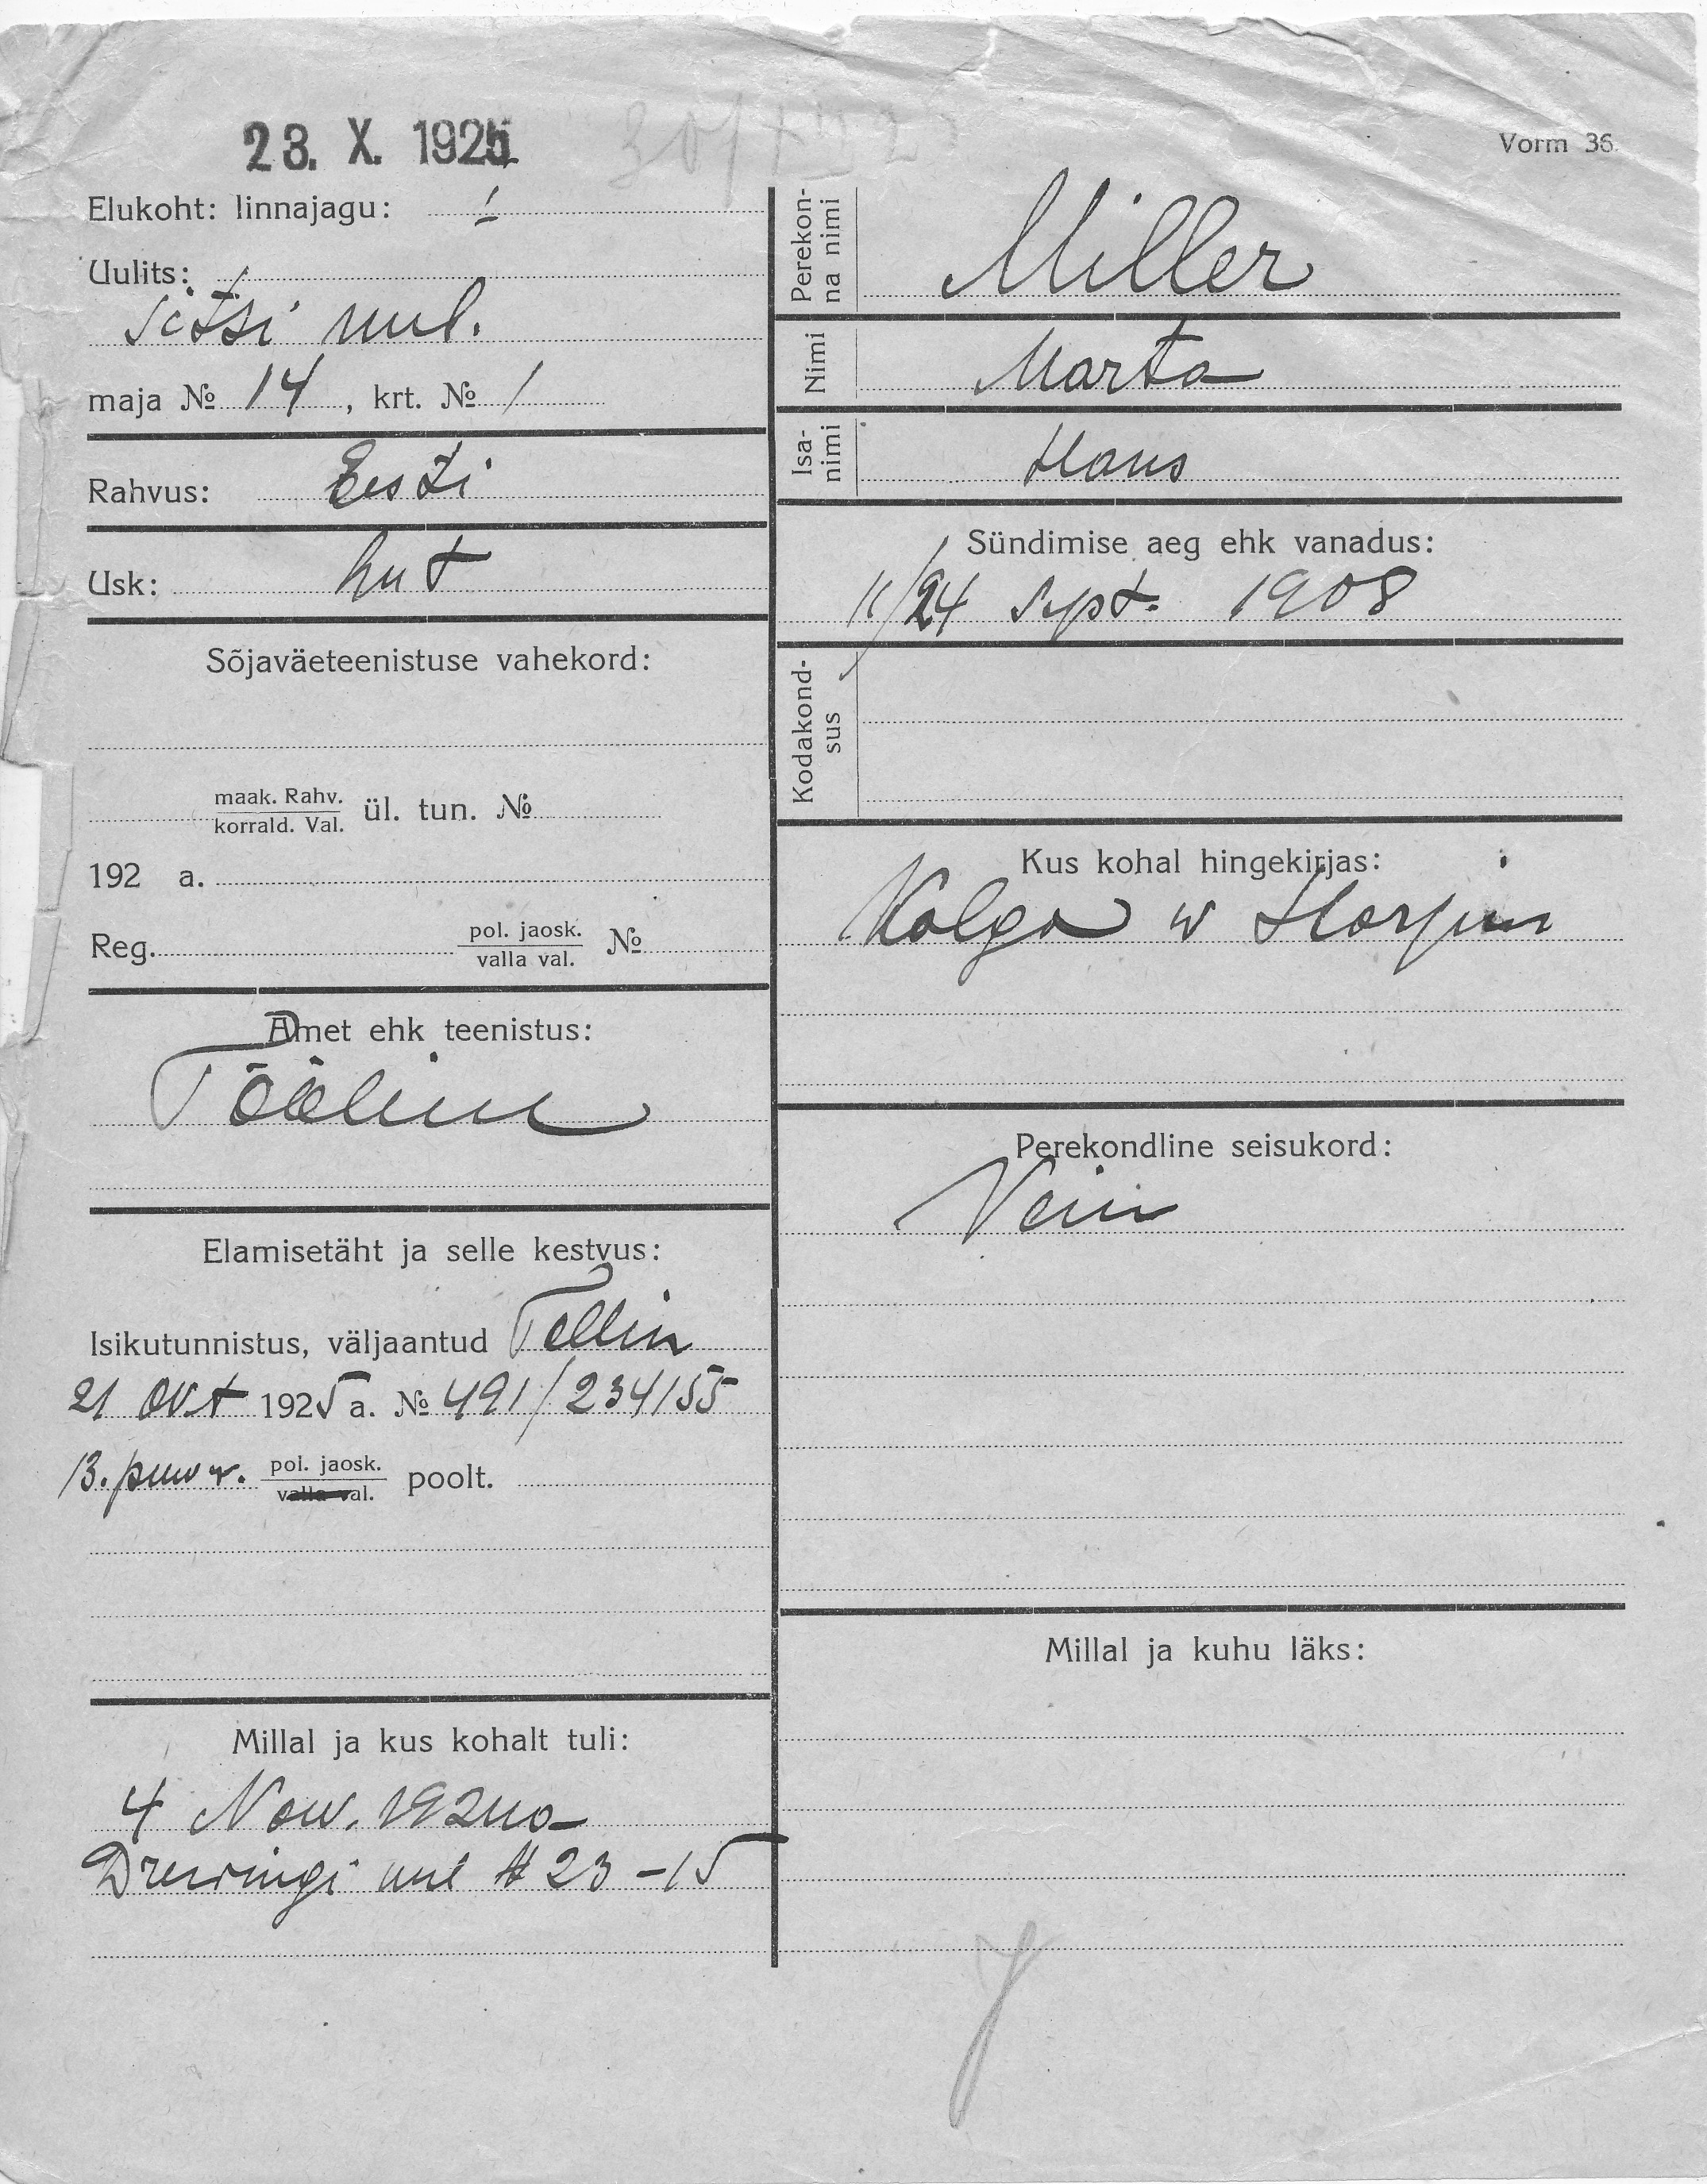 23. X. 1925
Vorm 36.
Elukoht: linnajagu: 1
Uulits:
Sitsi uul.
maja № 14, krt. № 1
Rahvus: Eesti
Usk: Lut
Sõjaväeteenistuse vahekord:
maak. Rahv.
korrald. Val. ül. tun. №
192 a.
Reg. pol. jaosk. №
valla val.
Amet ehk teenistus:
Tööline
Elamisetäht ja selle kestvus:
Isikutunnistus, väljaantud Tallin
21 Okt 1925 a. № 491/234155
13. pol. jaosk. poolt.
valla val.
Millal ja kus kohalt tuli:
4 Now. 1924 a
Drewingi uul # 23-15
Perekon-
na nimi Miller
Nimi Marta
Isa-
nimi Hans
Sündimise aeg ehk vanadus:
11/24 Sept. 1908
Kodakond-
sus
Kus kohal hingekirjas:
Kolga w Harjum
Perekondline seisukord:
Neiu
Millal ja kuhu läks: